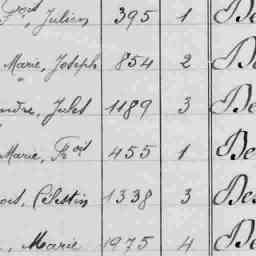 Fçois, Julien 395 1 De
Marie, Joseph 854 2 De
ndre, Jules 1189 3 De
Marie, Fçois 455 1 De
ois, Célestin 1338 3 Des
, Marie 1975 4 De